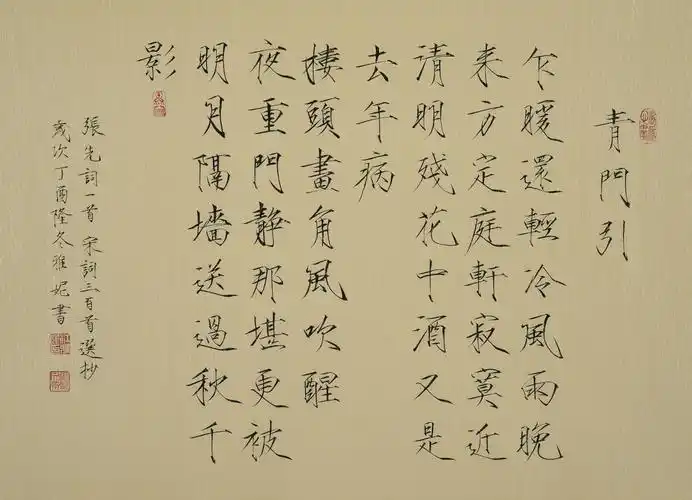 青門引
乍暖還輕冷風雨晚
来方定庭軒寂寞近
清明殘花中酒又是
去年病
樓頭畫角風吹醒
夜重門靜那堪更被
明月隔墻送過秋千
影
張先詞一首 宋詞三百首選抄
歲次丁酉隆冬雅妮書